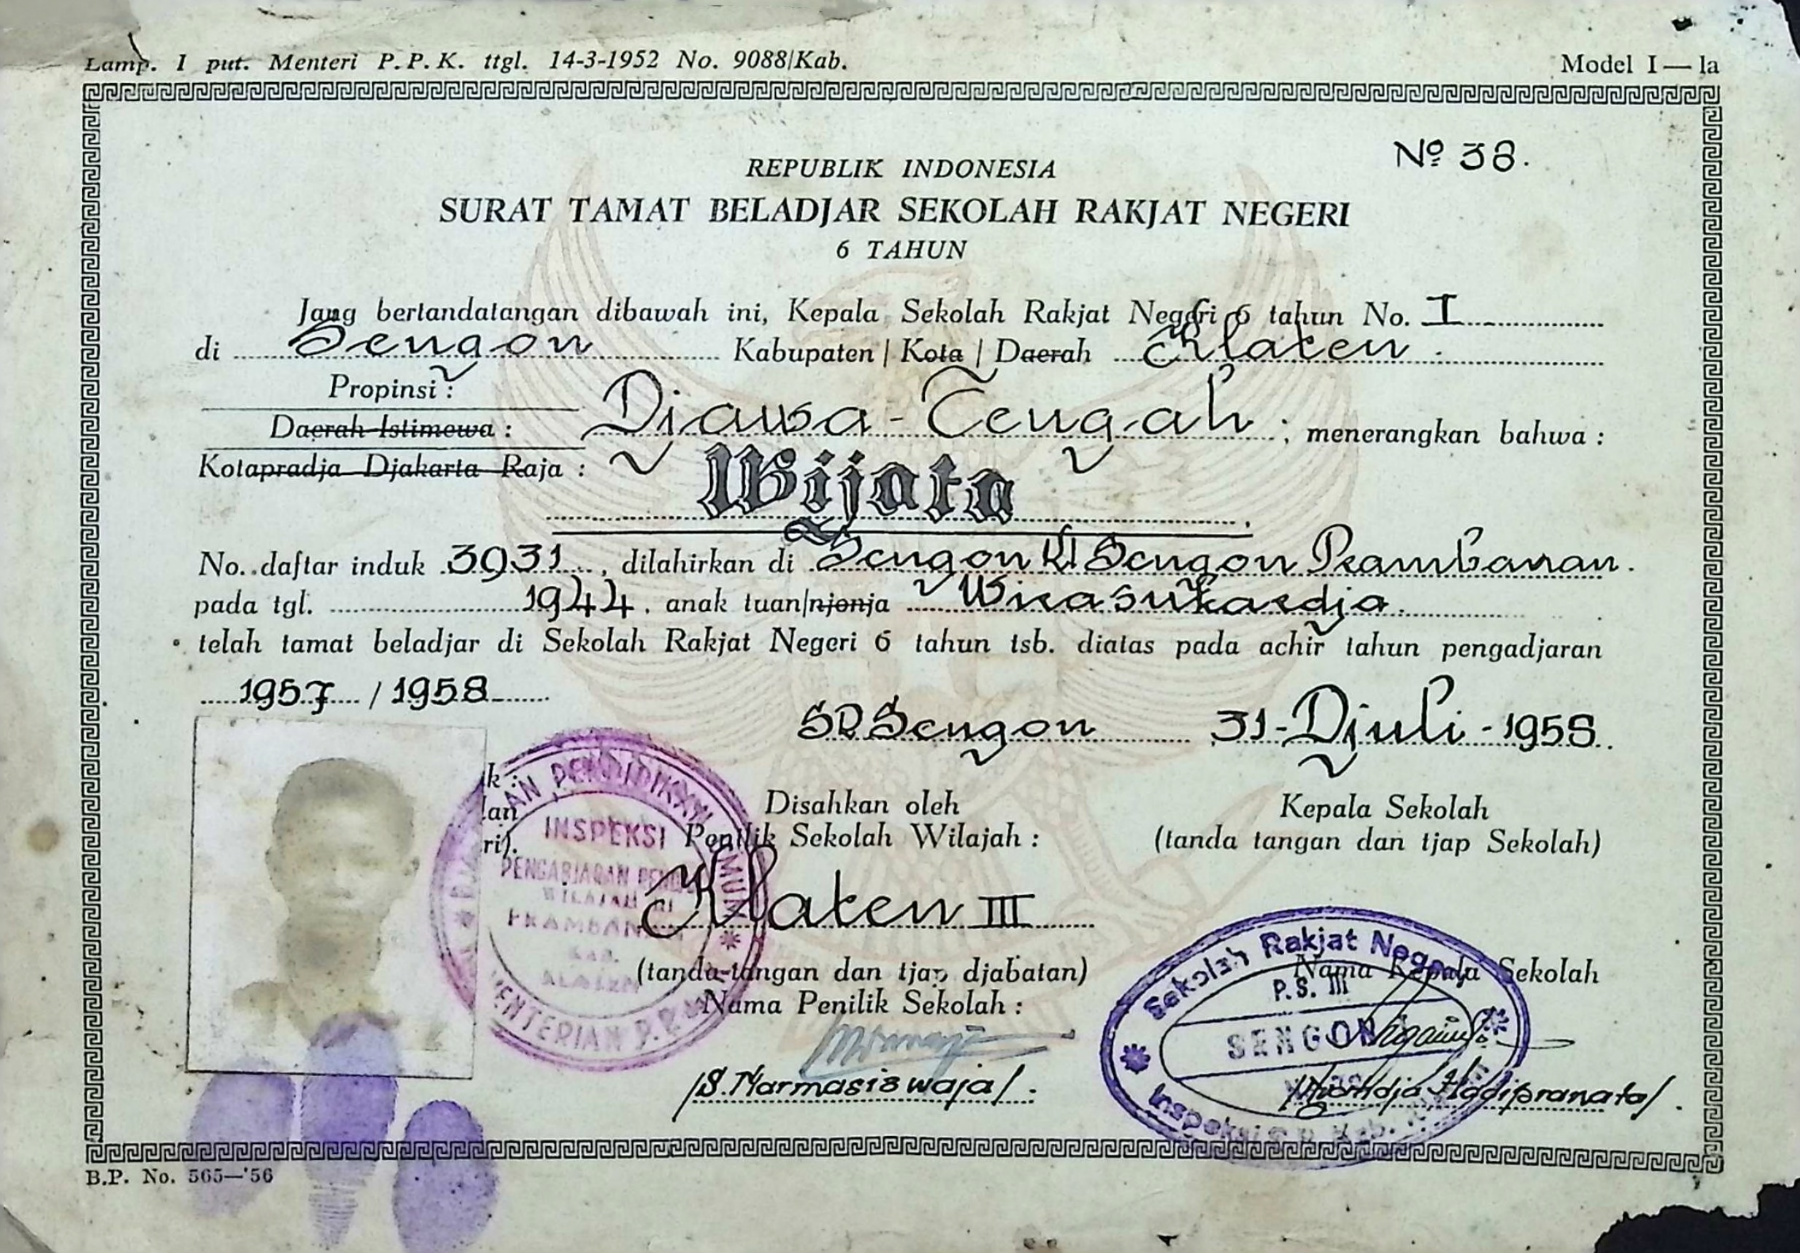 Lamp. I put. Menteri P.P.K. ttgl. 14-3-1952 No. 9088/Kab.
Model I — Ia
No 38.
REPUBLIK INDONESIA
SURAT TAMAT BELADJAR SEKOLAH RAKJAT NEGERI
6 TAHUN
Jang bertandatangan dibawah ini, Kepala Sekolah Rakjat Negeri 6 tahun No. I
di Sengon Kabupaten | Kota | Daerah Klaten.
Propinsi :
Daerah Istimewa : Djawa-Tengah ; menerangkan bahwa :
Kotapradja Djakarta Raja :
Wijata
No. daftar induk 3931, dilahirkan di Sengon Kl Sengon Prambanan.
pada tgl. 1944. anak tuan/njonja Wirasukardja.
telah tamat beladjar di Sekolah Rakjat Negeri 6 tahun tsb. diatas pada achir tahun pengadjaran
1957 / 1958
SR Sengon 31-Djuli-1958.
Disahkan oleh
Penilik Sekolah Wilajah :
Klaten III
(tanda-tangan dan tjap djabatan)
Nama Penilik Sekolah :
/S. Harmasiswaja/.
Kepala Sekolah
(tanda tangan dan tjap Sekolah)
Nama Kepala Sekolah
Hadipranata/.
INSPEKSI
PRAMBANAN
KAB.
KLATEN
KEMENTERIAN P.P.
Sekolah Rakjat Negeri
P.S. III
SENGON I
Inspeksi
B.P. No. 565—'56